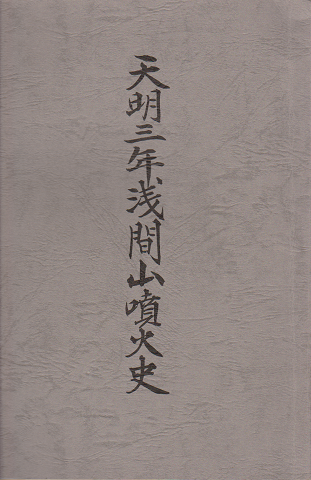 天明三年、浅間山噴火史